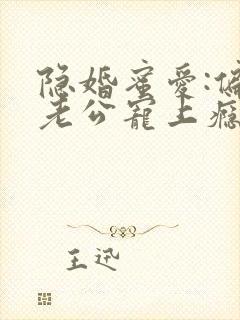 隐婚蜜爱:偏
老公宠上瘾
王迅